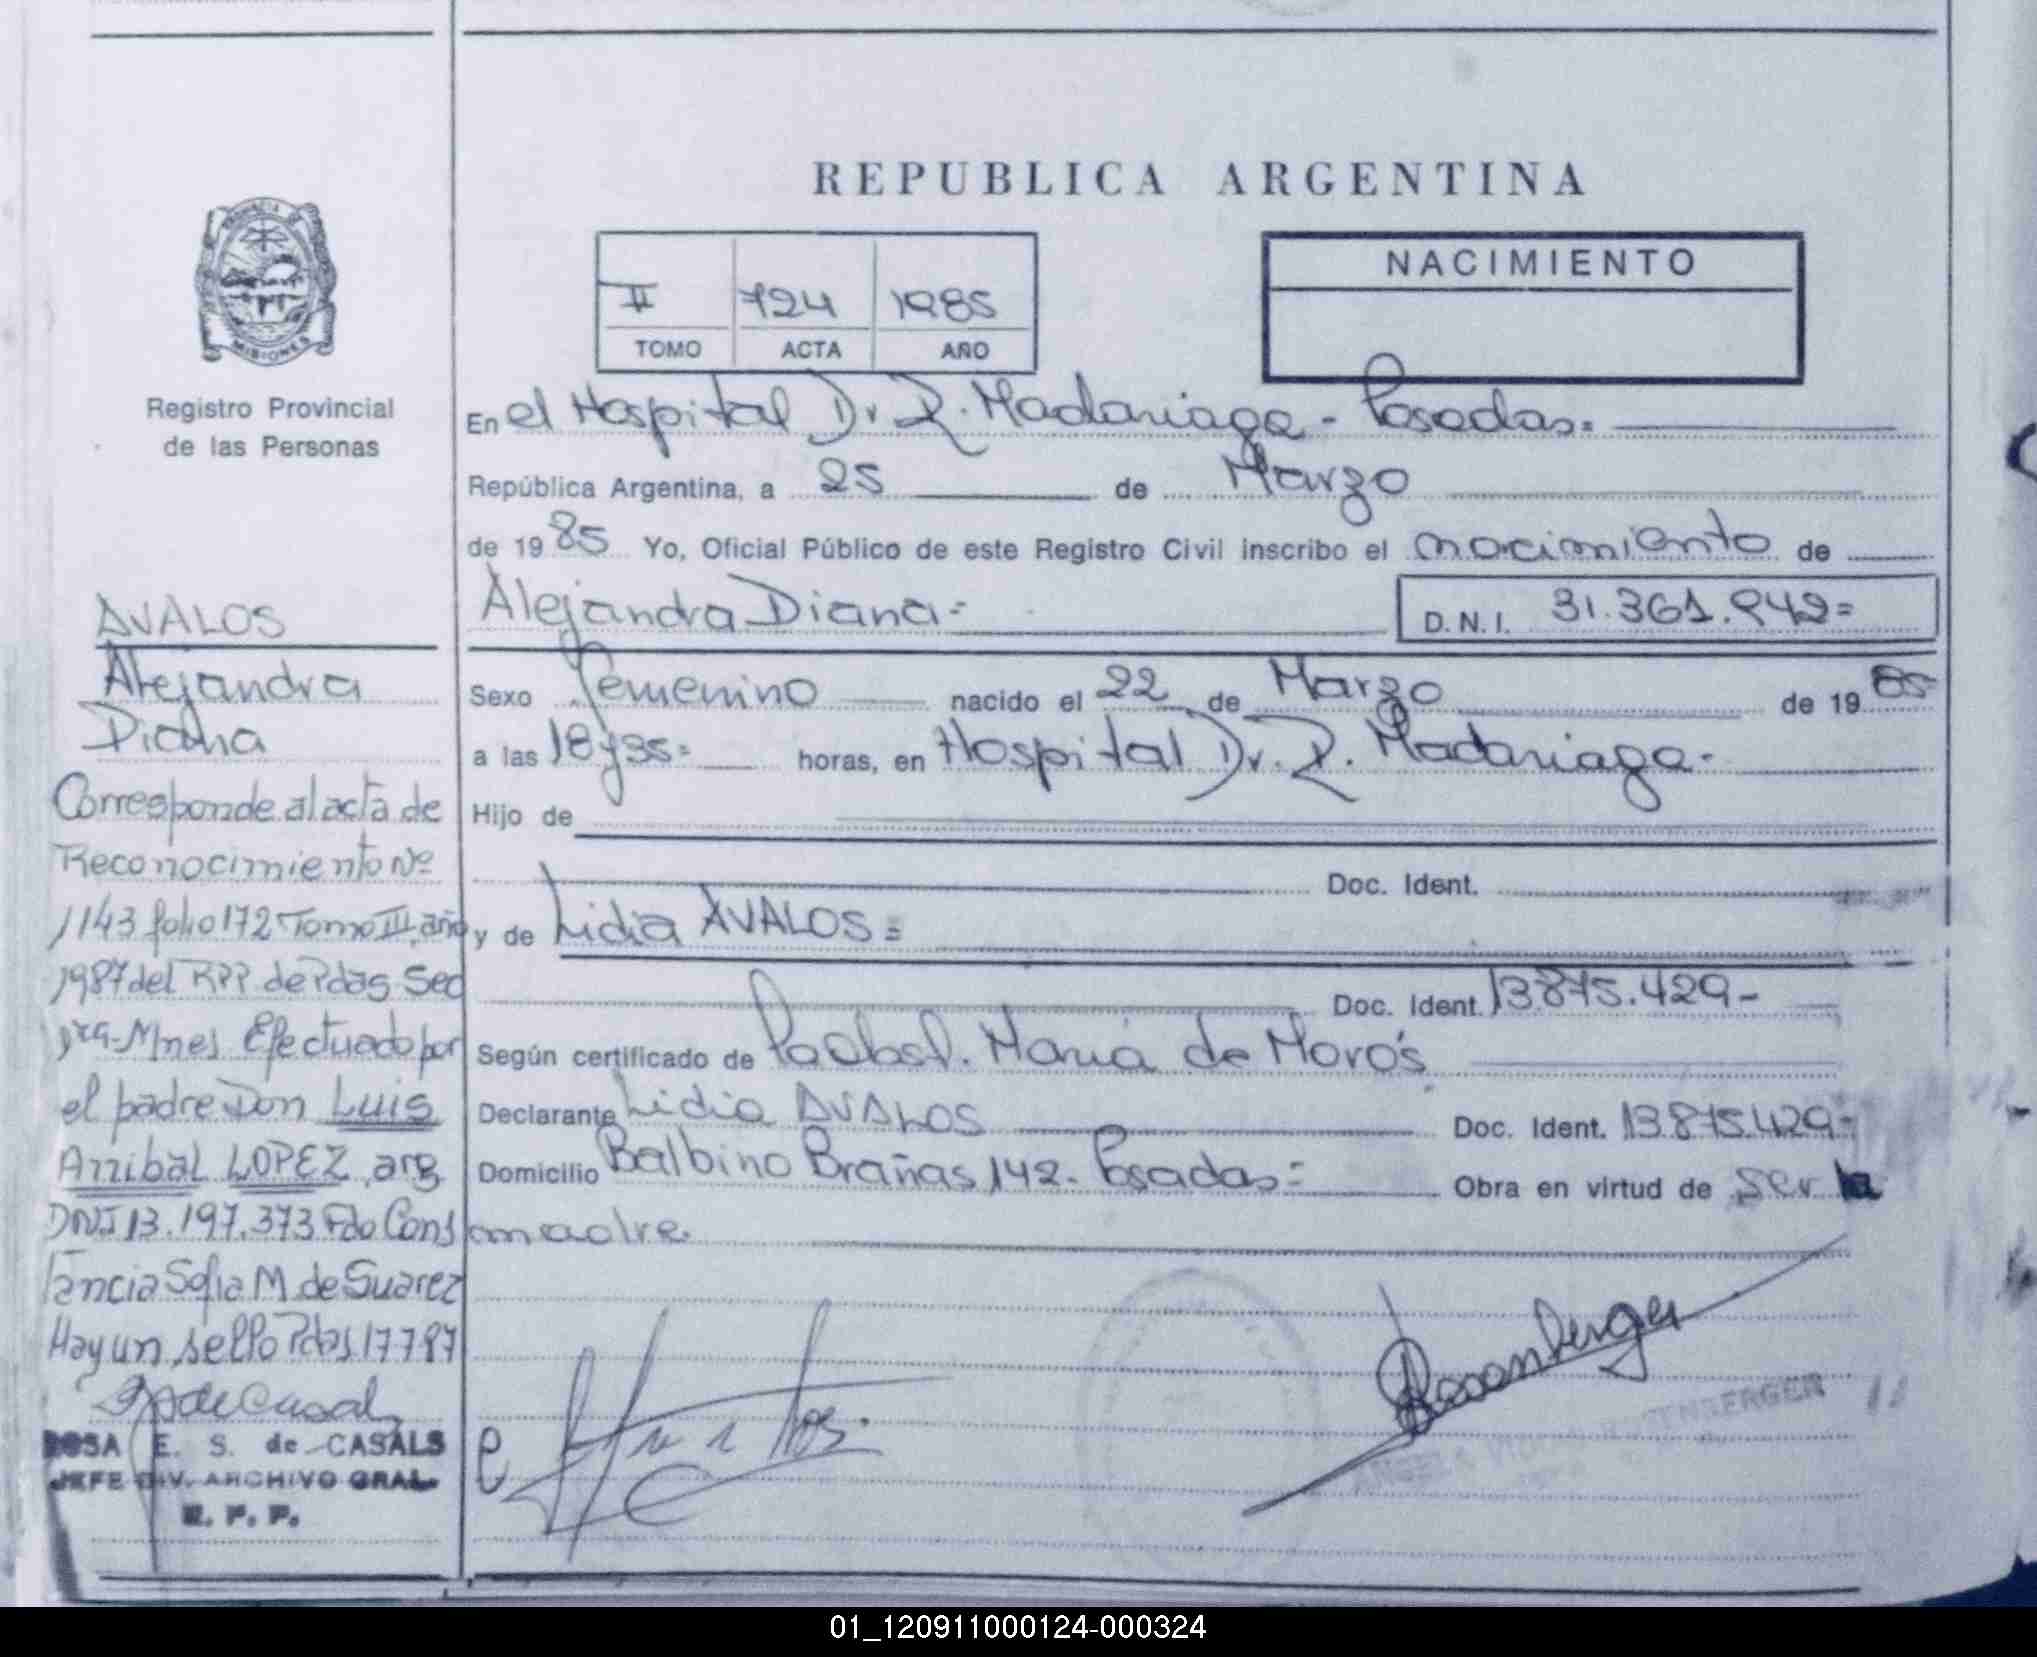 REPUBLICA ARGENTINA
PROVINCIA DE
MISIONES
Registro Provincial
de las Personas
II 724 1985
TOMO ACTA AÑO
NACIMIENTO
En el Hospital Dr R. Madariaga - Posadas=
República Argentina, a 25 de Marzo
de 1985 Yo, Oficial Público de este Registro Civil inscribo el nacimiento de
Alejandra Diana=
D.N.I. 31.361.942=
Sexo Femenino nacido el 22 de Marzo de 1985
a las 18 y 35= horas, en Hospital Dr. R. Madariaga-
Hijo de
Doc. Ident.
y de Lidia AVALOS=
Doc. Ident. 13.875.429-
Según certificado de María de Moro's
Declarante Lidia AVALOS Doc. Ident. 13.875.429-
Domicilio Balbino Brañas 142- Posadas= Obra en virtud de ser la
madre.
AVALOS
Alejandra
Diana
Corresponde al acta de
Reconocimiento Nº
1143 folio 172 Tomo III, año
1987 del RPP de Pdas Sec
1ra-Mnes Efectuado por
el padre Don Luis
Anibal LOPEZ, arg
DNI 13.197.373 Fdo Cons
tancia Sofia M. de Suarez
Hay un sello Pdas 17787
ROSA E. S. de CASALS
JEFE DIV. ARCHIVO GRAL.
R. P. P.
ROSENBERGER
01_120911000124-000324